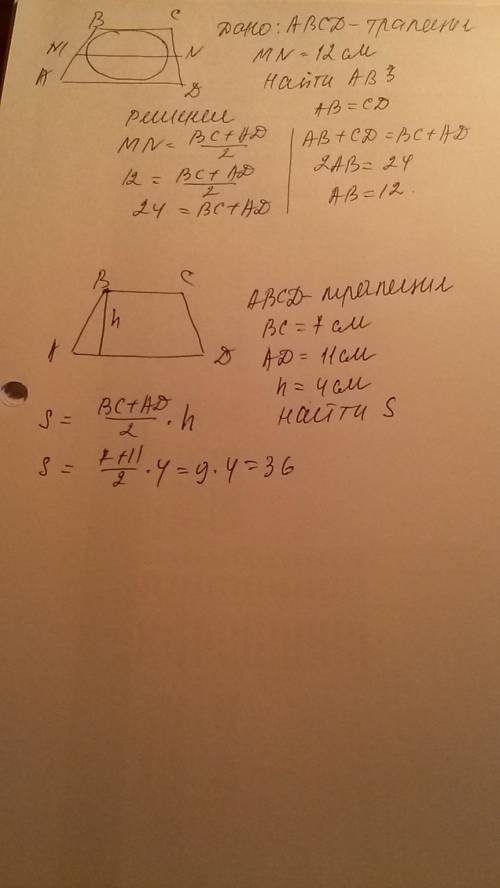 B C
M N
A D
Дано: ABCD - трапеция
MN = 12 см
Найти AB?
AB = CD
Решение
MN = BC + AD / 2
12 = BC + AD / 2
24 = BC + AD
AB + CD = BC + AD
2AB = 24
AB = 12.
B C
h
A D
ABCD - трапеция
BC = 7 см
AD = 11 см
h = 4 см
Найти S
S = BC + AD / 2 · h
S = 7 + 11 / 2 · 4 = 9 · 4 = 36